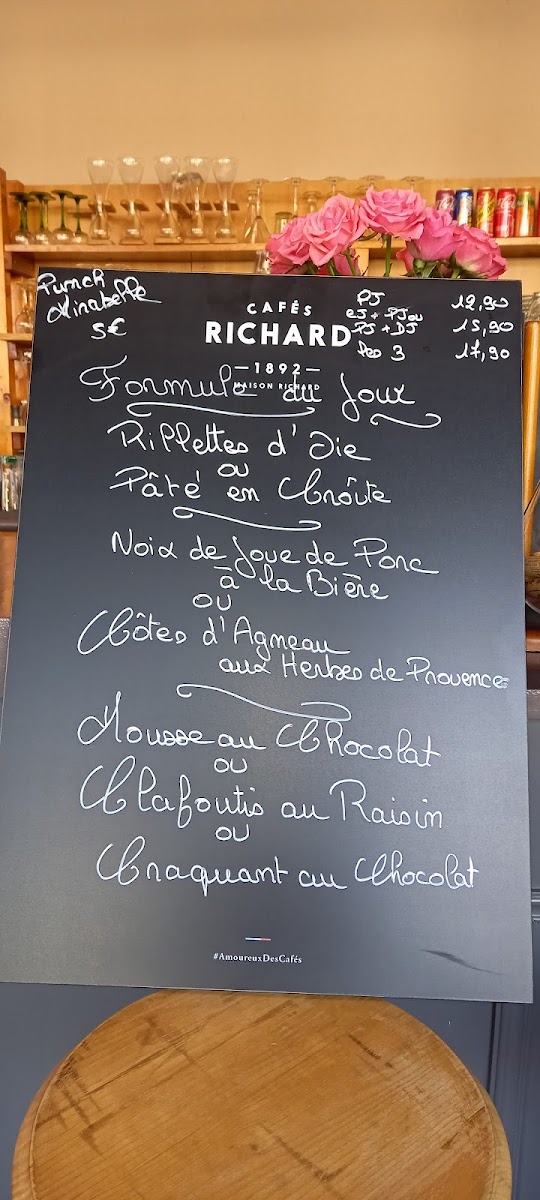 Punch
Mirabelle
5€
CAFÉS
RICHARD
—1892—
MAISON RICHARD
PJ 12,90
EJ + PJ ou
PJ + DJ 15,90
les 3 17,90
Formule du Jour
Rillettes d'Oie
ou
Pâté en Croûte
Noix de Joue de Porc
à la Bière
ou
Côtes d'Agneau
aux Herbes de Provence
Mousse au Chocolat
ou
Clafoutis au Raisin
ou
Craquant au Chocolat
#AmoureuxDesCafés